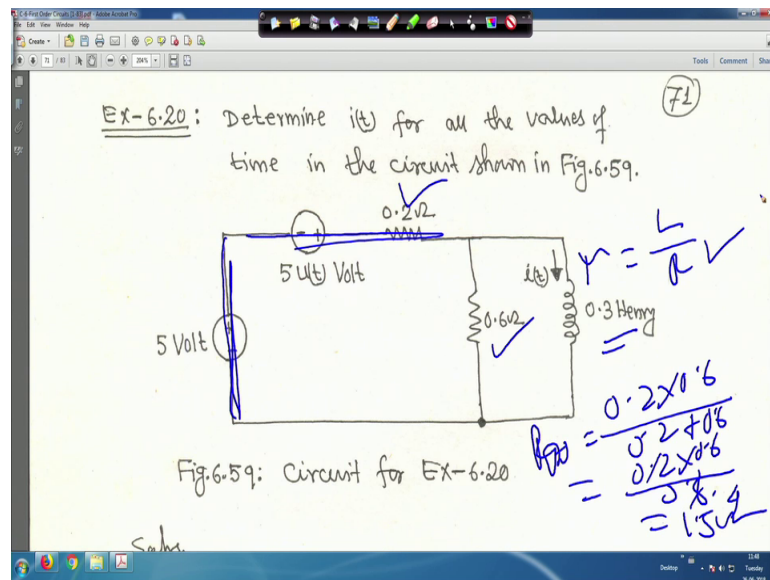 C-6-First Order Circuits [1-83].pdf - Adobe Acrobat Pro
File Edit View Window Help
Create
71 / 83 204% Tools Comment
71
Ex-6.20: Determine i(t) for all the values of
time in the circuit shown in Fig.6.59.
0.2Ω
- +
5u(t) Volt
i(t)
0.6Ω
0.3 Henry
5 Volt
Fig.6.59: Circuit for Ex-6.20
= L/R
= 0.2×0.6
0.2+0.6
= 0.2×0.6
= 1.5Ω
Soln.
Desktop
11:48
Tuesday